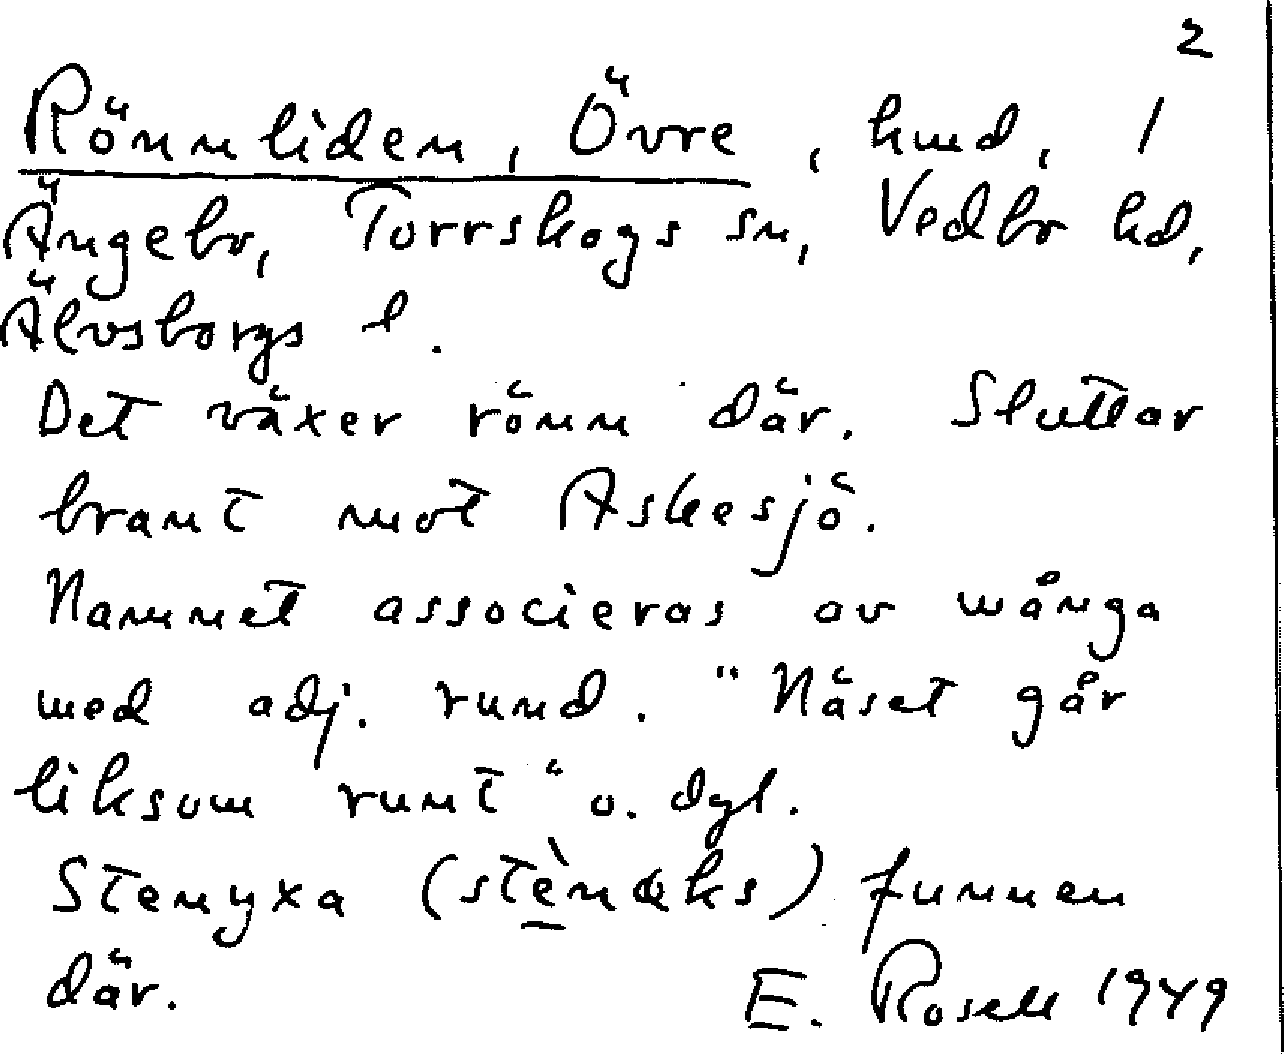 2
Rönnliden, Övre, hmd, 1
Ängebo, Torrskogs sn, Vedbo hd,
Älvsborgs l.
Det växer rönn där. Sluttar
brant mot Askesjö.
Namnet associeras av många
med adj. rund. "Näset går
liksom runt" o. dgl.
Stenyxa (stènæks) funnen
där. E. Rosell 1949